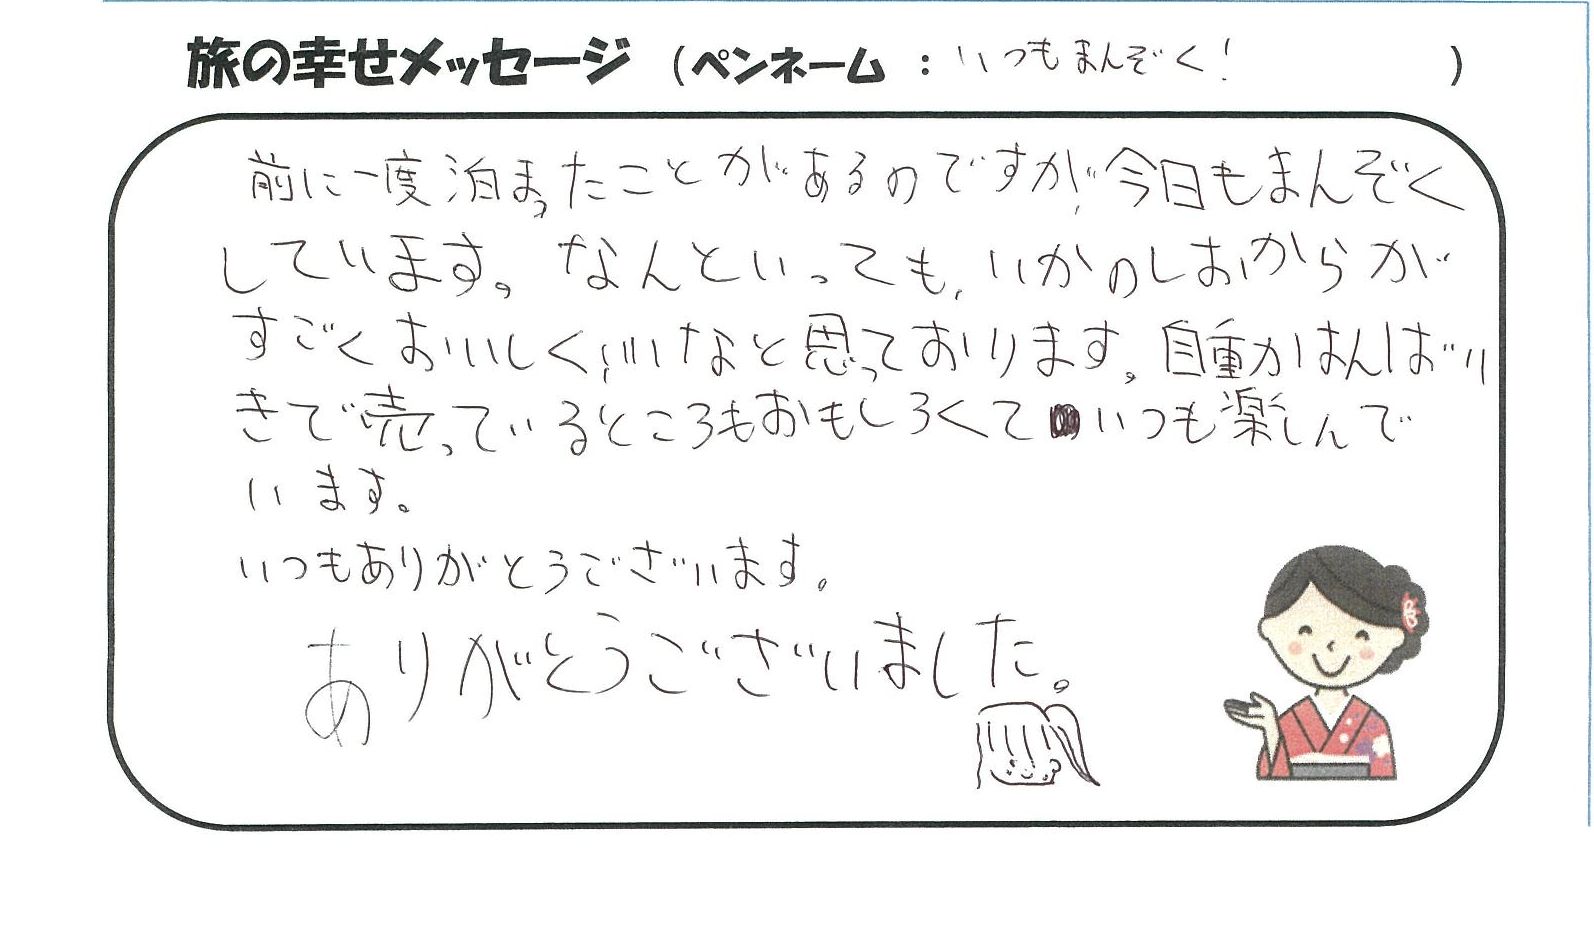 旅の幸せメッセージ (ペンネーム : いつもまんぞく! )
前に一度泊まったことがあるのですが、今日もまんぞく
しています。なんといっても、いかのしおからが
すごくおいしくいいなと思っております。自重かはんばい
きで売っているところもおもしろくていつも楽しんで
います。
いつもありがとうございます。
ありがとうございました。